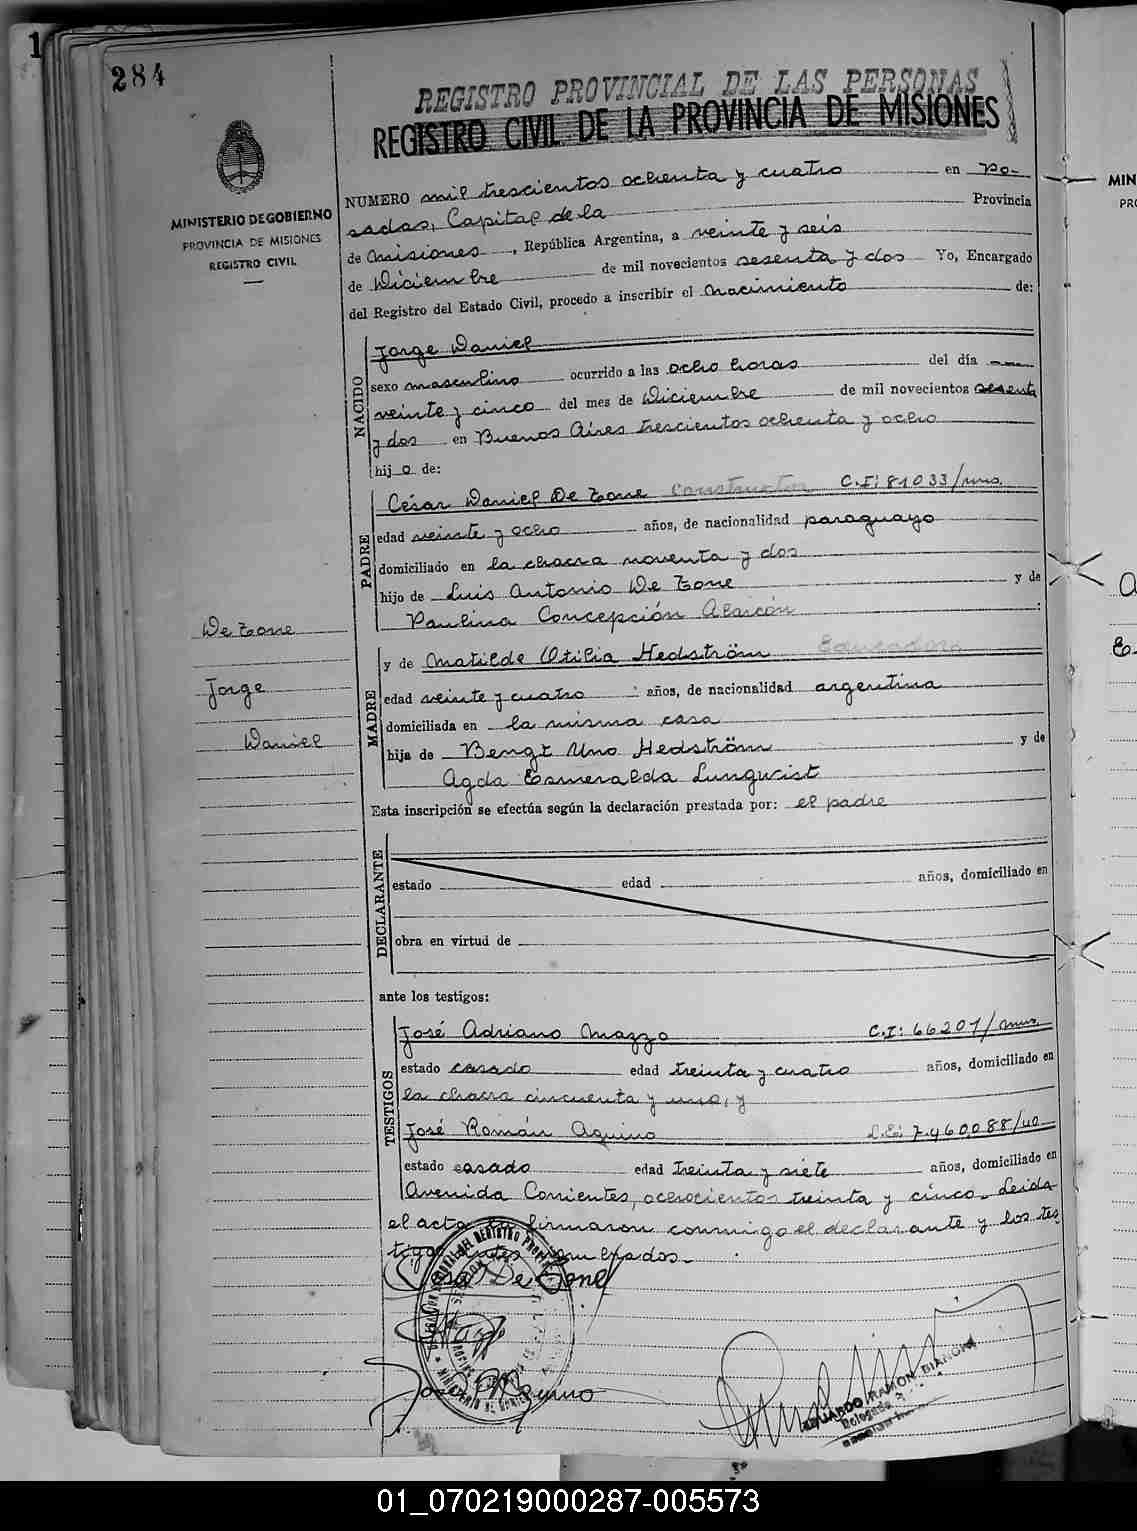 1
284
REGISTRO PROVINCIAL DE LAS PERSONAS
REGISTRO CIVIL DE LA PROVINCIA DE MISIONES
MINISTERIO DE GOBIERNO
PROVINCIA DE MISIONES
REGISTRO CIVIL
NUMERO mil trescientos ochenta y cuatro en Po-
sadas, Capital de la Provincia
de Misiones, República Argentina, a veinte y seis
de Diciembre de mil novecientos sesenta y dos Yo, Encargado
del Registro del Estado Civil, procedo a inscribir el nacimiento de:
NACIDO
Jorge Daniel
sexo masculino ocurrido a las ocho horas del día
veinte y cinco del mes de Diciembre de mil novecientos sesenta
y dos en Buenos Aires trescientos ochenta y ocho
hijo de:
PADRE
César Daniel De Tone constructor C.I: 81033/mns.
edad veinte y ocho años, de nacionalidad paraguayo
domiciliado en la chacra noventa y dos
hijo de Luis Antonio De Tone y de
Paulina Concepción Alarcón
MADRE
y de Matilde Otilia Hedström Educadora
edad veinte y cuatro años, de nacionalidad argentina
domiciliada en la misma casa
hija de Bengt Uno Hedström y de
Agda Esmeralda Lungwist
De Tone
Jorge
Daniel
Esta inscripción se efectúa según la declaración prestada por: el padre
DECLARANTE
estado edad años, domiciliado en
obra en virtud de
ante los testigos:
TESTIGOS
José Adriano Mazzo C.I: 66201/mns.
estado casado edad treinta y cuatro años, domiciliado en
la chacra cincuenta y uno, y
José Román Aquino L.E: 7.460.088/
estado casado edad treinta y siete años, domiciliado en
Avenida Corrientes, ochocientos treinta y cinco. Leida
el acta la firmaron conmigo el declarante y los tes
tigos
De Tone
EDUARDO RAMON BIANCHI
Delegado
MIN
PRO
01_070219000287-005573